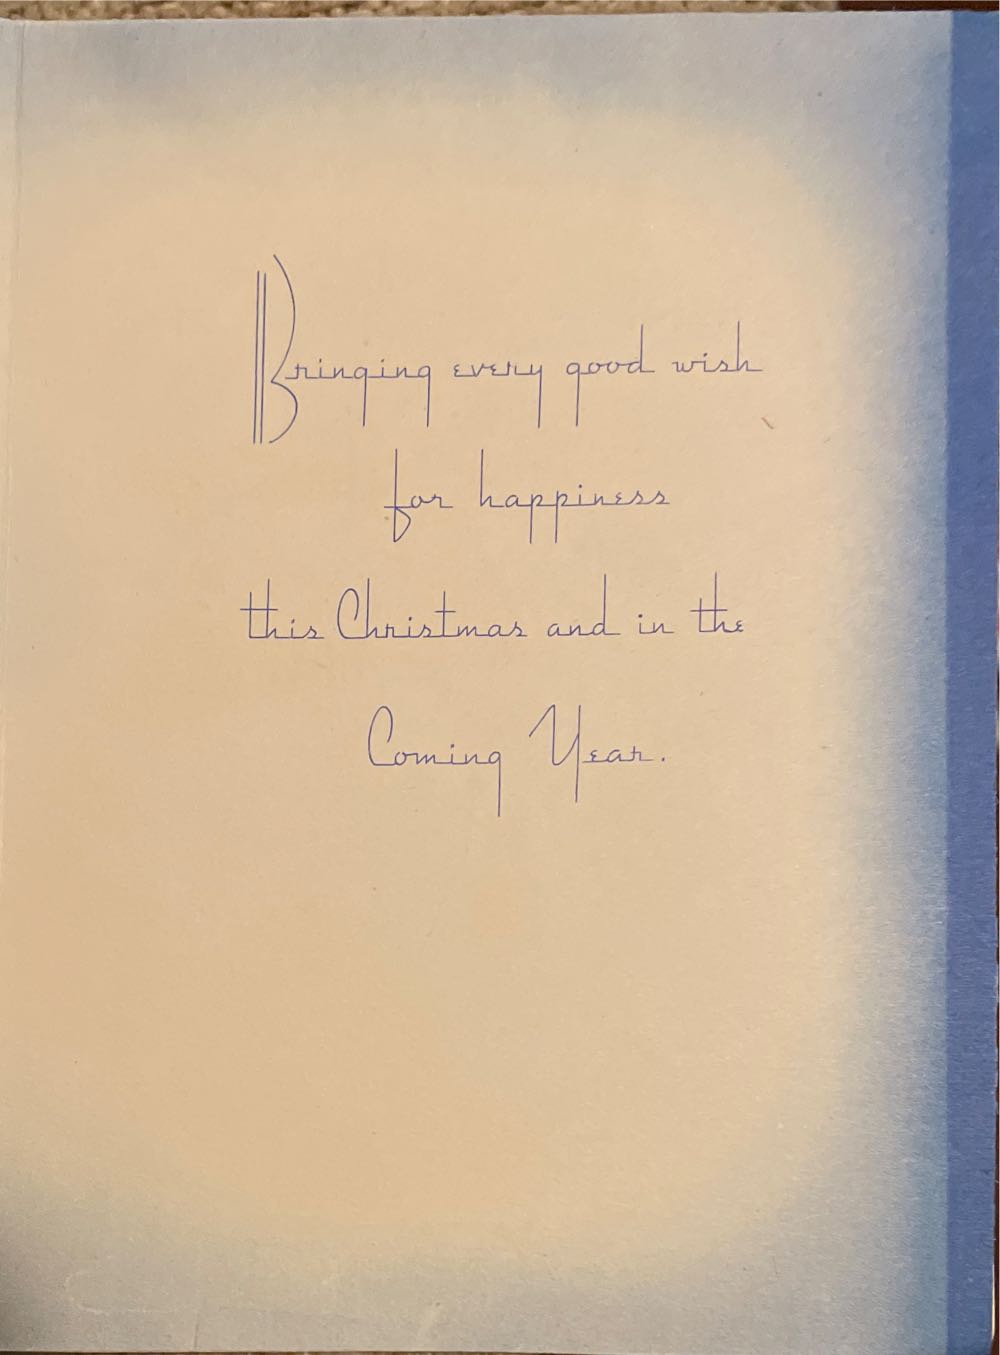 Bringing every good wish
for happiness
this Christmas and in the
Coming Year.